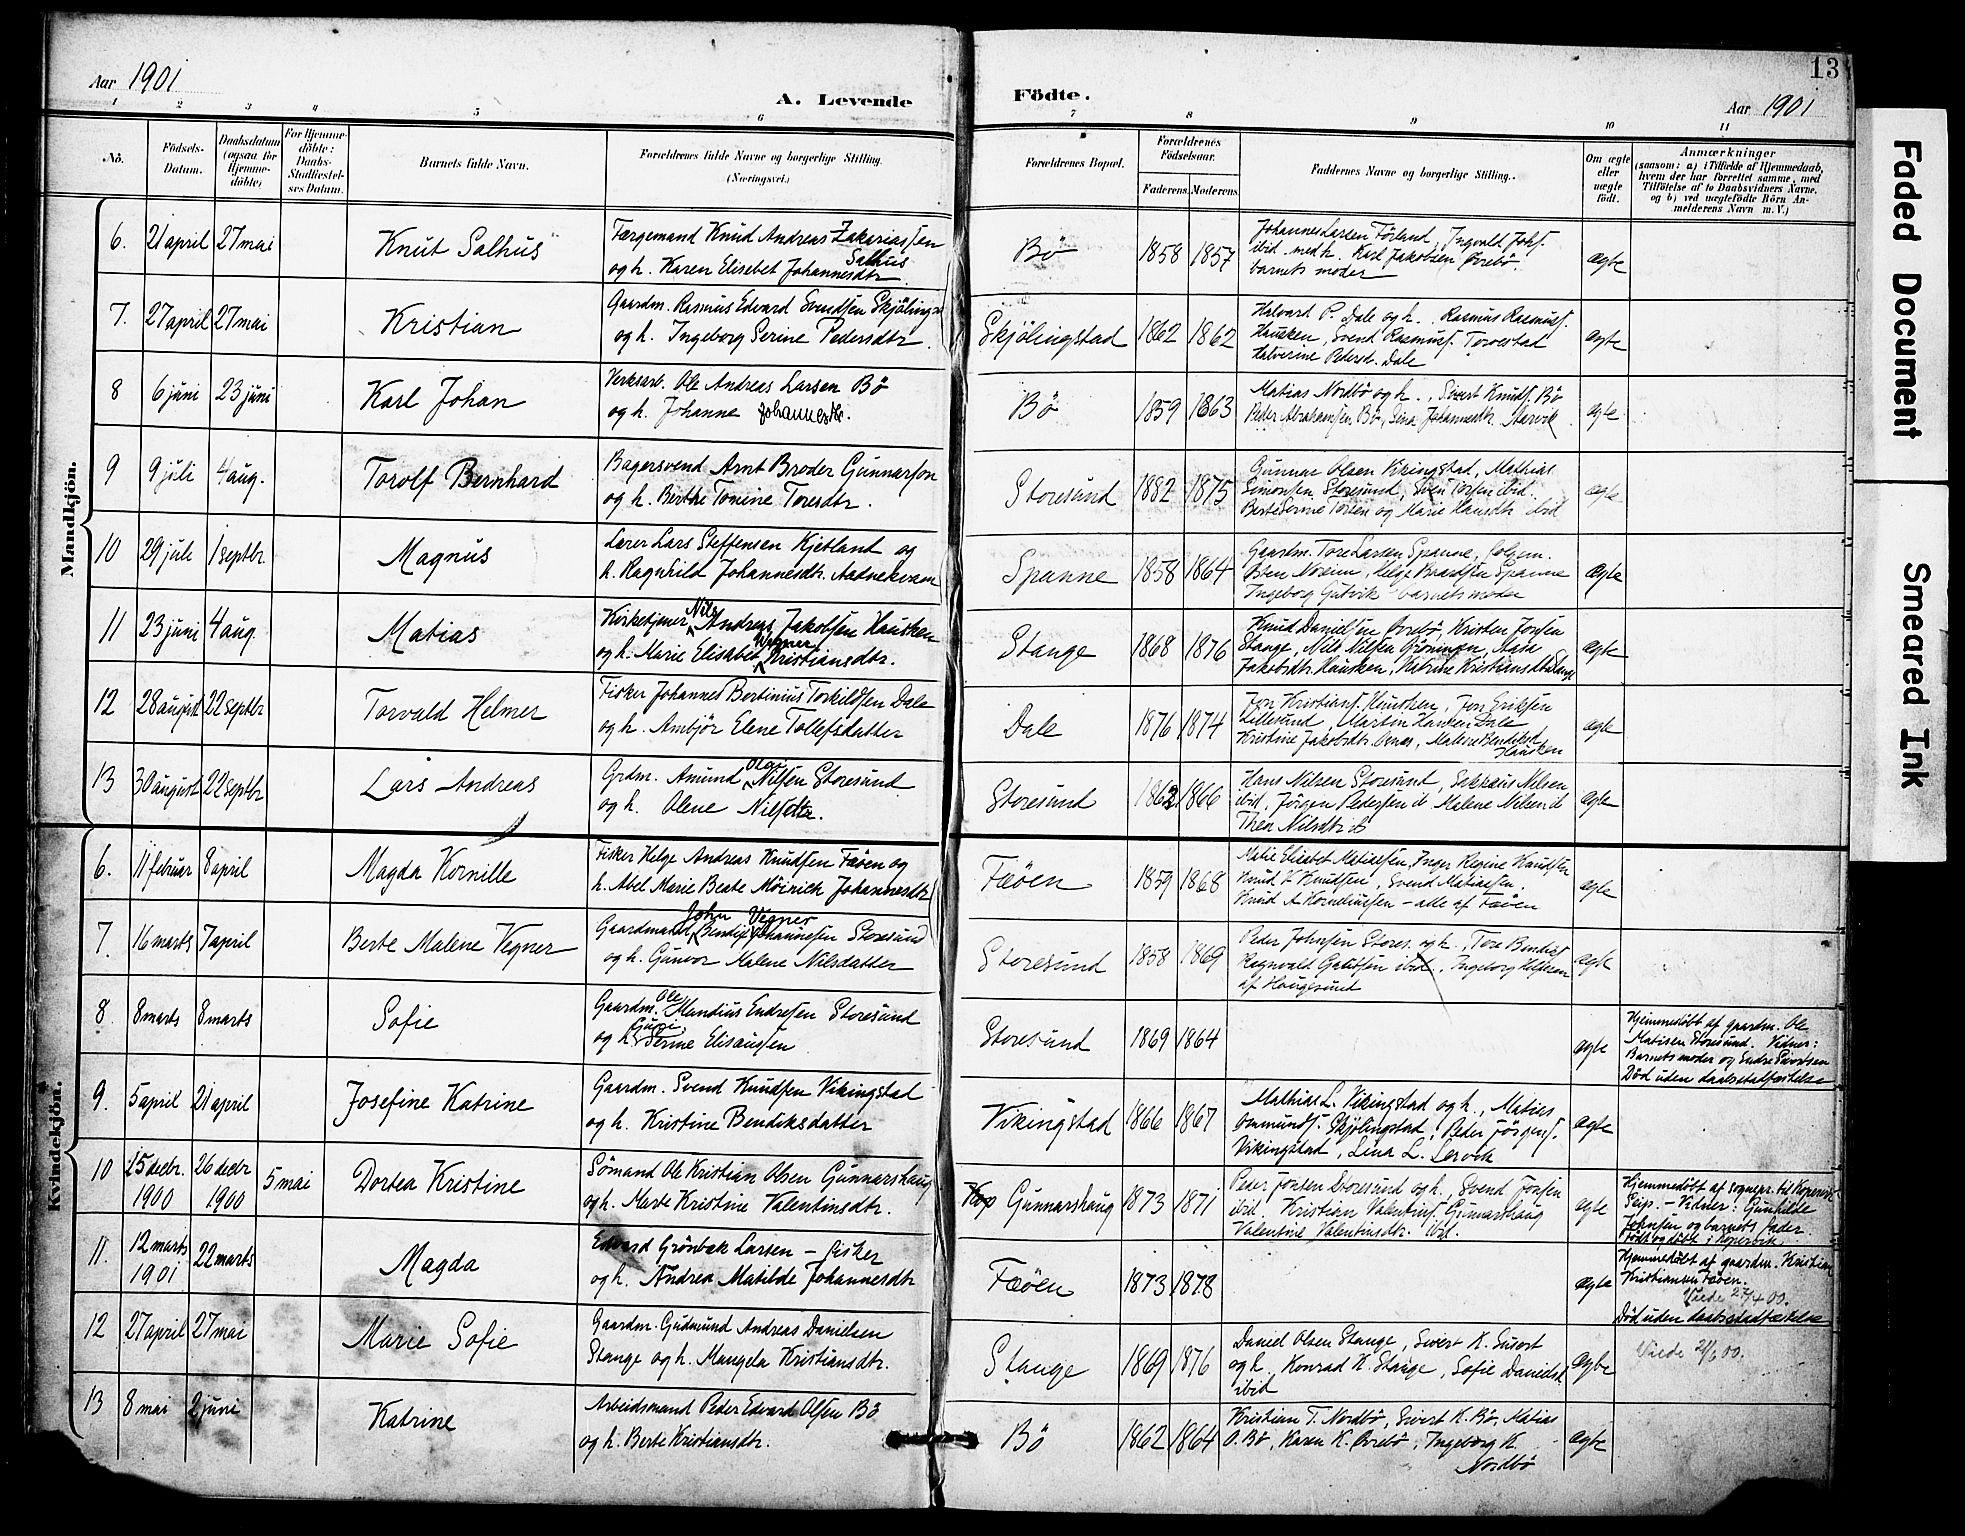 Aar 1901
A. Levende
Födte.
Aar 1901
13
1 2 3 4 5 6 7 8 9 10 11
No.
Födsels-
Datum.
Daabsdatum
(ogsaa for
Hjemme-
döbte)
For Hjemme-
döbte:
Daabs-
Stadfæstel-
ses Datum.
Barnets fulde Navn.
Forældrenes fulde Navne og borgerlige Stilling.
(Næringsvei.)
Forældrenes Bopæl.
Forældrenes
Födselsaar.
Faderens. Moderens.
Faddernes Navne og borgerlige Stilling.
Om ægte
eller
uægte
födt.
Anmærkninger
(saasom: a) i Tilfælde af Hjemmedaab,
hvem der har forrettet samme, med
Tilföielse af to Daabsvidners Navne,
og b) ved uægtefödte Börn An-
melderens Navn m. V.)
Mandkjön.
6. 21 april 27 mai
Knut Salhus
Færgemand Knud Andreas Zakariassen
Salhus
og h. Karen Elisebet Johannesdtr
Bö 1858 1857
Johannes Larsen Förland, Ingvald Johs.
ibid. med h. Karl Jakobsen Övrebö.
barnets moder
ægte
7. 27 april 27 mai
Kristian
Gaardm. Rasmus Edvard Svendsen
og h. Ingeborg Serine Pedersdtr.
Skjölingstad 1862 1862
Halvard P. Dale og h. Rasmus Rasmuss.
Hausken, Svend Rasmuss. Torvestad
Halverine Pedersd. Dale
ægte
8 6 juni 23 juni
Karl Johan
Verksarb. Ole Andreas Larsen Bö
og h. Johanne Johannesdtr.
Bö 1859 1863
Matias Nordbö og h., Sivert Knuds. Bö
Peder Abrahamsen Bö, Lina Johannesdtr.
ægte
9 9 juli 4 aug.
Torolf Bernhard
Bagersvend Arnt Broder Gunnarson
og h. Berthe Tomine Toresdtr.
Storesund 1882 1875
Gunnar Olsen Vikingstad, Mathias
Simonsen Storesund, Sven Torsen ibid.
og Marie Hansdtr ibid
ægte
10 29 juli 1 septbr.
Magnus
Lærer Lars Steffensen Kjetland og
h. Ragnhild Johannesdtr. Aadnekvam
Spanne 1858 1864
Gaardm. Tore Larsen Spanne,
Helge Baardsen Spanne
Ingeborg Gutvik barnets moder
Ægte
11 23 juni 4 aug.
Matias
Kirketjener Nils Andreas Jakobsen Hausken
og h. Marie Elisabet Kristiansdtr.
Stange 1868 1876
Knud Danielsen Övrebö, Kristen Jonsen
Stange, Nils Nilsen Gröningen,
Jakobsdtr. Hausken, Katrine Kristiansdtr Stange
ægte
12 28 august 22 septbr
Torvald Helmer
Fisker Johannes Bertinius Torkildsen Dale
og h. Ambjör Elene Tollefsdatter
Dale 1876 1874
Jon Kristians. Hausken, Jon Eriksen
Lillesund, Martin Hansen Dale
Kristine Jakobsdtr. Malene Bendiksd.
Hausken
ægte
13 30 august 22 septbr
Lars Andreas
Grdm. Amund Olai Nilsen Storesund
og h. Olene Nilsdtr.
Storesund 1862 1866
Hans Nilsen Storesund, Sakkæus Nilsen
ibid, Jörgen Pedersen ib Malene Nilsen ib
Thea Nilsdtr ib
ægte
Kvindekjön.
6. 11 februar 8 april
Magda Kornille
Fisker Helge Andreas Knudsen Fæöen og
h. Abel Marie Beate Möirich Johannesdtr
Fæöen 1859 1868
Matie Elisabet Matiassen, Inger Regine Knudsen
Knud H Knudsen, Svend Matiassen.
Knud A Korneliussen – alle af Fæöen
ægte
7. 16 marts 7 april
Berte Malene Vegner
John Vegner
Gaardmand Bendix Johannesen Storesund
og h. Gunvor Malene Nilsdatter
Storesund 1858 1869
Peder Johnsen Stores. og h., Tore Bendixs.
Ragnvald ibid, Ingeborg
af Haugesund
ægte
8. 8 marts 8 marts
Sofie
Gaardm. Ole Mandius Endresen Storesund
og h. Guri Serine Elisaussen
Storesund 1869 1864
ægte
Hjemmedöbt af gaardm. Ole
Matisen Storesund. Vidner:
Barnets moder og Endre
Död uden daabsstadfæstelse
9. 5 april 21 april
Josefine Katrine
Gaardm. Svend Knudsen Vikingstad
og h. Kristine Bendiksdatter
Vikingstad 1866 1867
Mathias L. Vikingstad og h., Matias
Omunds. Skjölingstad, Peder Jörgens.
Vikingstad, Lina L. Lervik
ægte
10 15 decbr. 1900 26 decbr 1900 5 mai
Dortea Kristine
Sömand Ole Kristian Olsen Gunnarshaug
og h. Marte Kristine Valentinsdtr.
Gunnarshaug 1873 1871
Peder Jonsen Storesund og h, Svend Jonsen
ibid. Kristian Valentins. Gunnarshaug
Valentine Valentinsdtr. ibid.
ægte
Hjemmedöbt af sognepr. til Kopervik
Seip. – Vidner: Gunhilde
Johnsen og barnets fader.
Födt og döbt i Kopervik
11. 12 marts 1901 22 marts
Magda
Edvard Grönbæk Larsen – fisker
og h. Andrea Matilde Johannesdtr
Fæöen 1873 1878
ægte
Hjemmedöbt af gaardm. Kristian
Kristiansen Fæöen.
Viede 27/4 00.
Död uden daabsstadfæstelse
12 27 april 27 mai
Marie Sofie
Gaardm. Gudmund Andreas Danielsen
Stange og h. Mangela Kristiansdtr.
Stange 1869 1876
Daniel Olsen Stange, Sivert K. Susort
og h, Konrad K. Stange, Sofie Danielsd.
ibid
ægte
Viede 21/6 00.
13 8 mai 2 juni
Katrine
Arbeidsmand Peder Edvard Olsen Bö
og h. Berte Kristiansdtr.
Bö 1862 1864
Kristian T. Nordbö, Sivert K. Bö, Matias
O. Bö, Karen K. Övrebö, Ingeborg K.
Nordbö
ægte
Faded Document
Smeared Ink